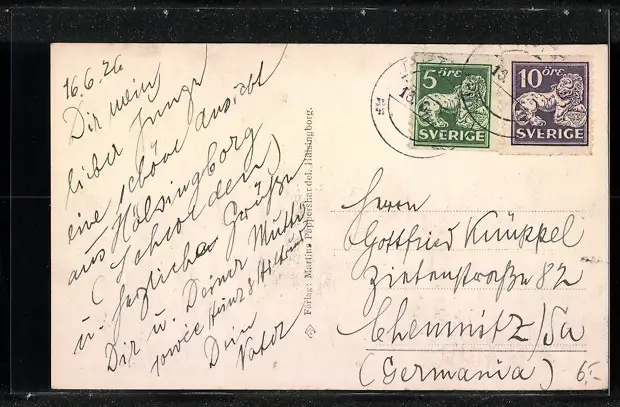 16.6.26
Dir mein
lieber Junge
eine schöne Ansicht
aus Hälsingborg
(Schweden)
u. herzliche Grüße
Dir u. Deiner Mutti
sowie Heinz &
Dein
Vater
Förlag: Martins Pappershandel, Hälsingborg.
5 öre
SVERIGE
10 öre
SVERIGE
13
Herrn
Gottfried Knüppel
Zietenstraße 82
Chemnitz/Sa
(Germania)
6,-